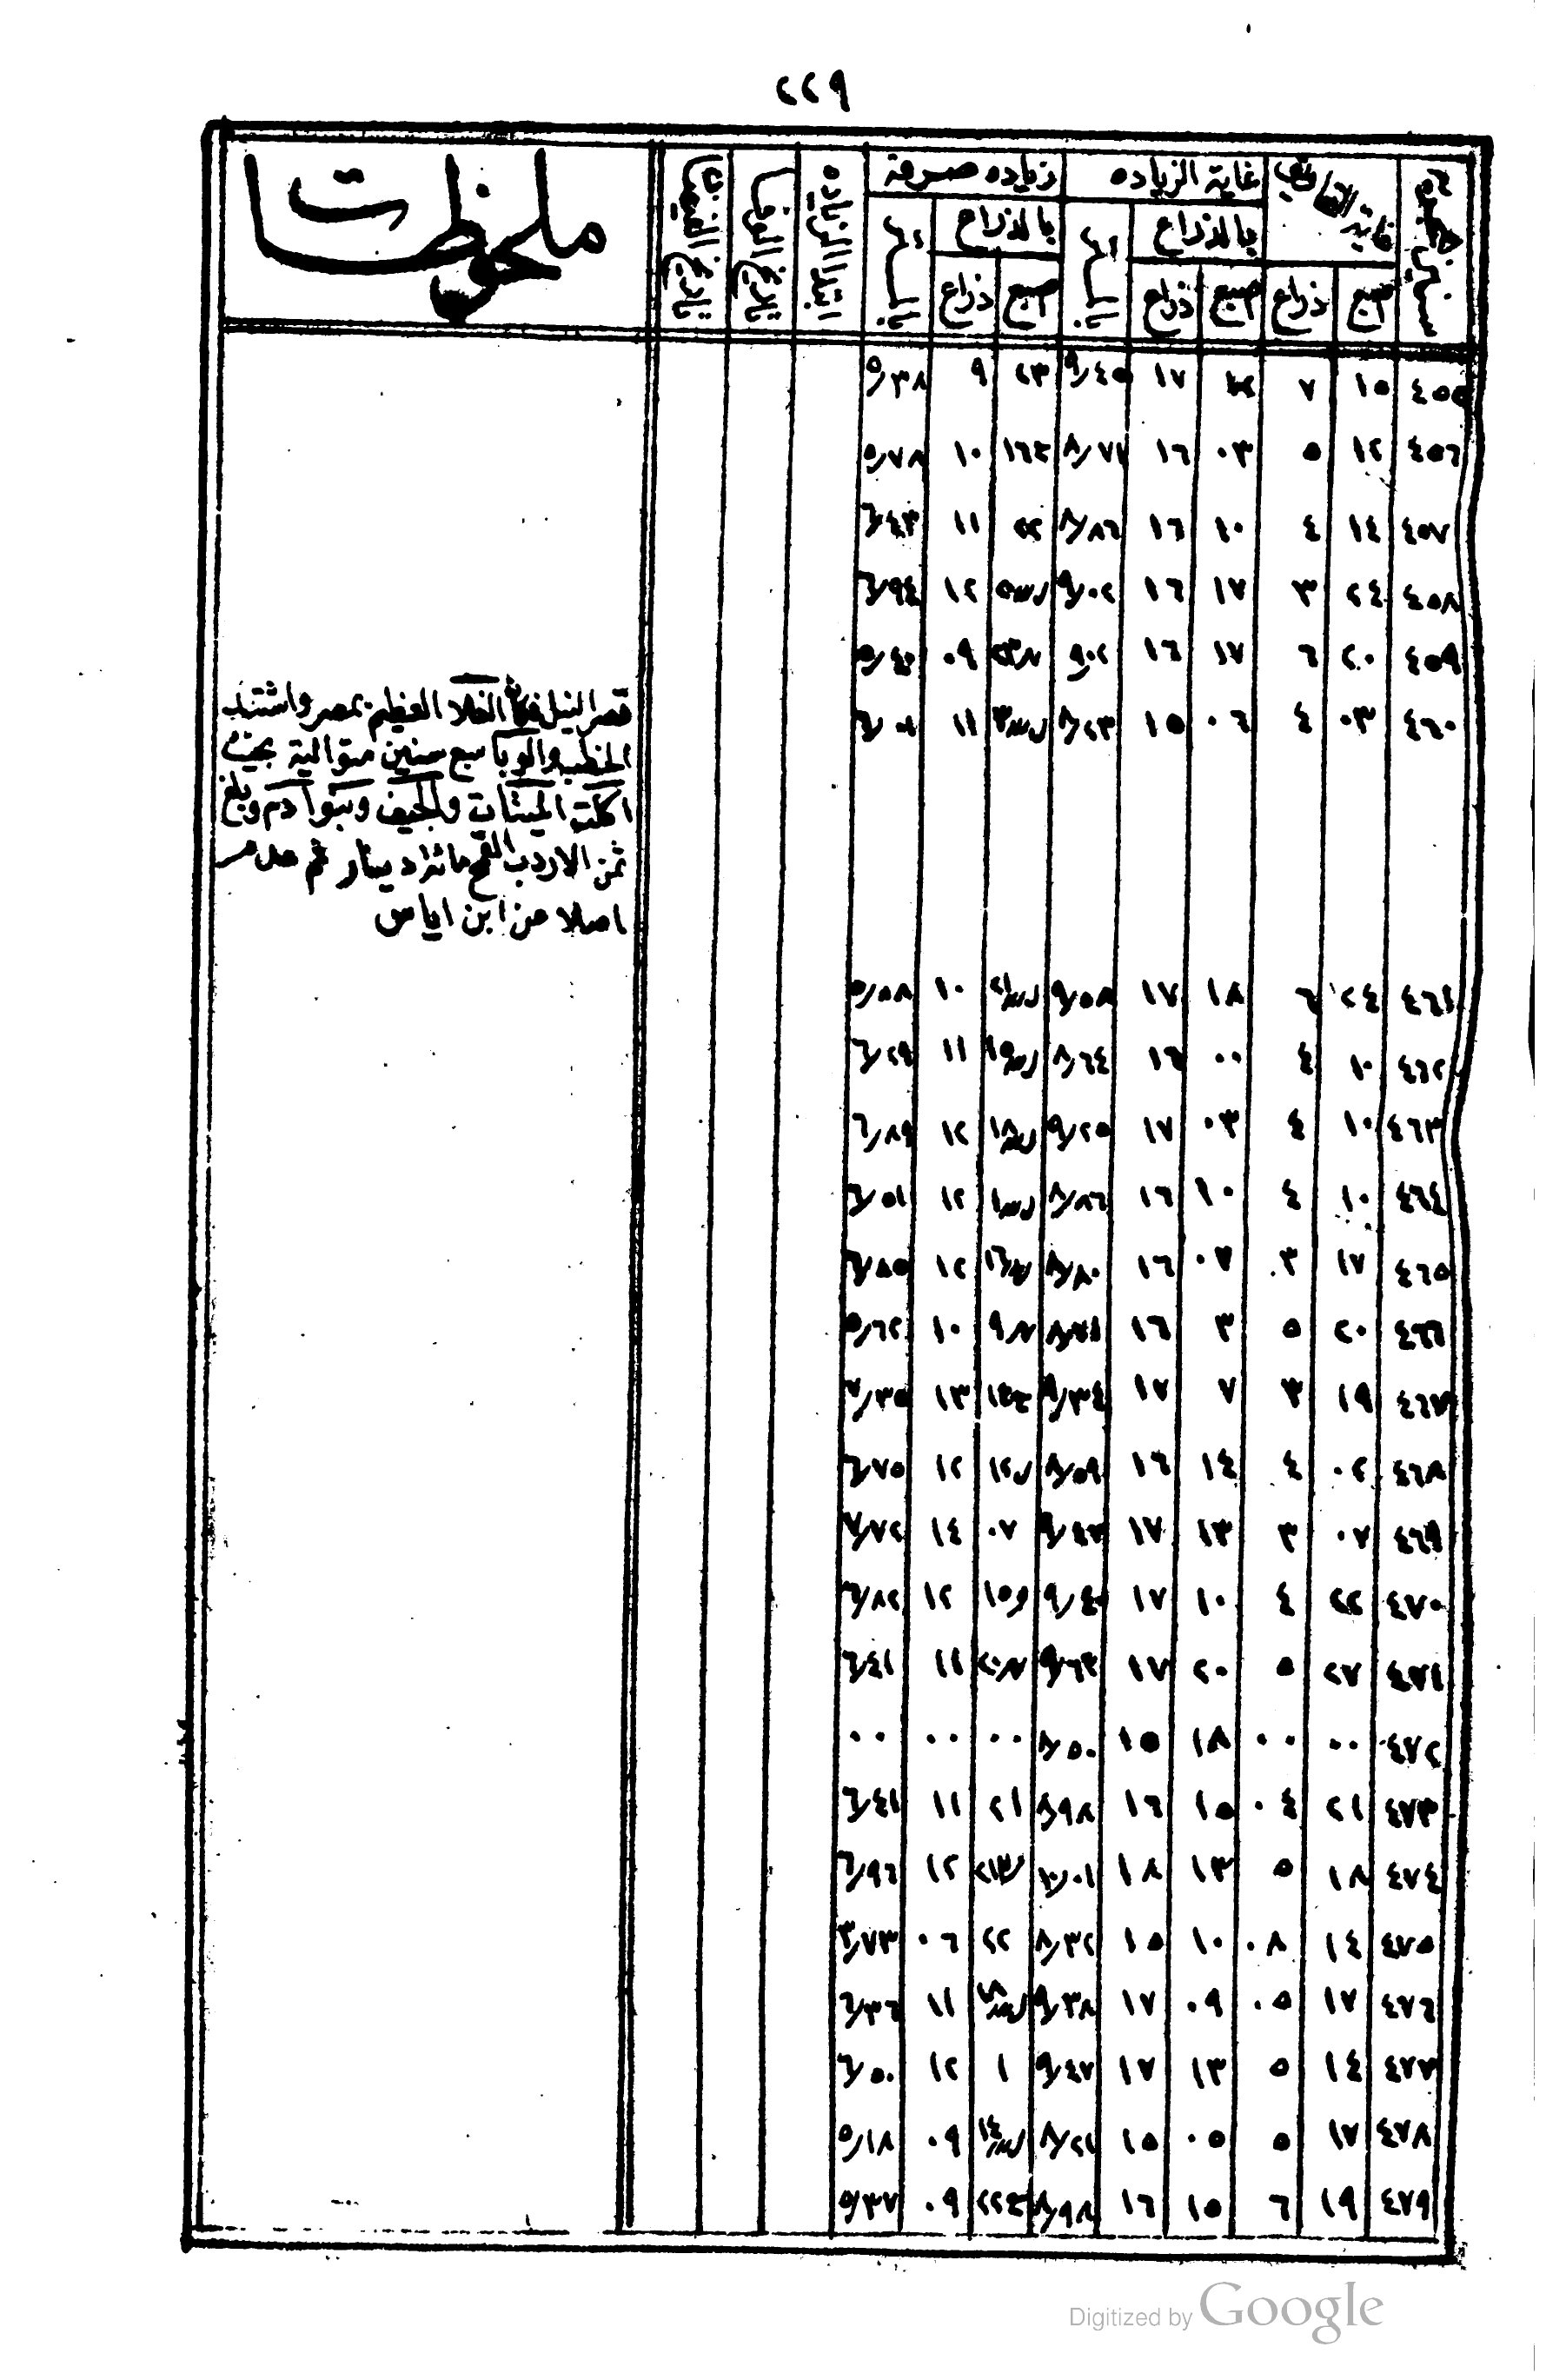 ٢٢٩
سنين هجرية | غاية التحاريق | غاية الزياده | زياده صرفة | ابتدا الزياده | تاريخ الوفا | تاريخ | ملحوظات
بالذراع | بالذراع
اصبع | ذراع | اصبع | ذراع | اصبع | ذراع
٤٥٥ | ١٥ | ٧ | | ١٧ | ٩٫٤٥ | ٢٣ | ٩ | ٥٫٣٨
٤٥٦ | ١٢ | ٥ | ٠٣ | ١٦ | ٨٫٧١ | | ١٠ | ٥٫٧٨
٤٥٧ | ١٤ | ٤ | ١٠ | ١٦ | ٨٫٨٦ | ٢٢ | ١١ | ٦٫٤٣
٤٥٨ | ٢٤ | ٣ | ١٧ | ١٦ | ٩٫٠٢ | | ١٢ | ٦٫٩٤
٤٥٩ | ٢٠ | ٦ | ١٧ | ١٦ | ٩٫٠٢ | | ٠٩ | ٥٫٤٠
٤٦٠ | ٠٣ | ٤ | ٠٦ | ١٥ | ٨٫٢٣ | | ١١ | ٦٫٠١
قصر النيل فكان الغلا العظيم بمصر واشتد
الخطب والوبا سبع سنين متوالية بحيث
اكلت الميتات والجيف وبنوا آدم وبلغ
ثمن الاردب القمح مائة دينار ثم عدم
اصلا من ابن اياس
٤٦١ | ٢٤ | ٦ | ١٨ | ١٧ | ٩٫٥٨ | | ١٠ | ٥٫٨٨
٤٦٢ | ١٠ | ٤ | ٠٠ | ١٦ | ٨٫٦٤ | | ١١ | ٦٫٢٩
٤٦٣ | ١٠ | ٤ | ٠٣ | ١٧ | ٩٫٢٥ | | ١٢ | ٦٫٨٩
٤٦٤ | ١٠ | ٤ | ١٠ | ١٦ | ٨٫٨٦ | | ١٢ | ٦٫٥١
٤٦٥ | ١٧ | ٣ | ٠٧ | ١٦ | ٨٫٨٠ | | ١٢ | ٦٫٨٥
٤٦٦ | ٢٠ | ٥ | ٣ | ١٦ | ٨٫٧١ | | ١٠ | ٥٫٦٢
٤٦٧ | ١٩ | ٣ | ٧ | ١٧ | ٩٫٣٤ | | ١٣ | ٧٫٣٥
٤٦٨ | ٠٢ | ٤ | ١٤ | ١٦ | ٨٫٥٩ | | ١٢ | ٦٫٧٥
٤٦٩ | ٠٧ | ٣ | ١٣ | ١٧ | ٩٫٤٧ | ٠٧ | ١٤ | ٧٫٧٢
٤٧٠ | ٢٢ | ٤ | ١٠ | ١٧ | ٩٫٤٠ | | ١٢ | ٦٫٨٢
٤٧١ | ٢٧ | ٥ | ٢٠ | ١٧ | ٩٫٦٣ | | ١١ | ٦٫٤١
٤٧٢ | ٠٠ | ٠٠ | ١٨ | ١٥ | ٨٫٥٠ | ٠٠ | ٠٠ | ٠٠
٤٧٣ | ٢١ | ٠٤ | ١٥ | ١٦ | ٨٫٩٨ | ٢١ | ١١ | ٦٫٤١
٤٧٤ | ١٨ | ٥ | ١٣ | ١٨ | ١٠٫٠١ | | ١٢ | ٦٫٩٦
٤٧٥ | ١٤ | ٠٨ | ١٠ | ١٥ | ٨٫٣٢ | ٢٢ | ٠٦ | ٣٫٧٣
٤٧٦ | ١٧ | ٠٥ | ٠٩ | ١٧ | ٩٫٣٨ | | ١١ | ٦٫٣٦
٤٧٧ | ١٤ | ٥ | ١٣ | ١٧ | ٩٫٤٧ | ١ | ١٢ | ٦٫٥٠
٤٧٨ | ١٧ | ٥ | ٠٥ | ١٥ | ٨٫٢١ | | ٠٩ | ٥٫١٨
٤٧٩ | ١٩ | ٦ | ١٥ | ١٦ | ٨٫٩٨ | | ٠٩ | ٥٫٣٧
Digitized by Google